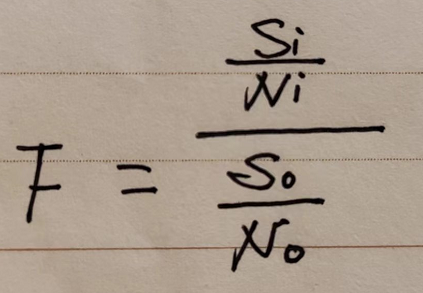 F = \frac{\frac{Si}{Ni}}{\frac{So}{No}}